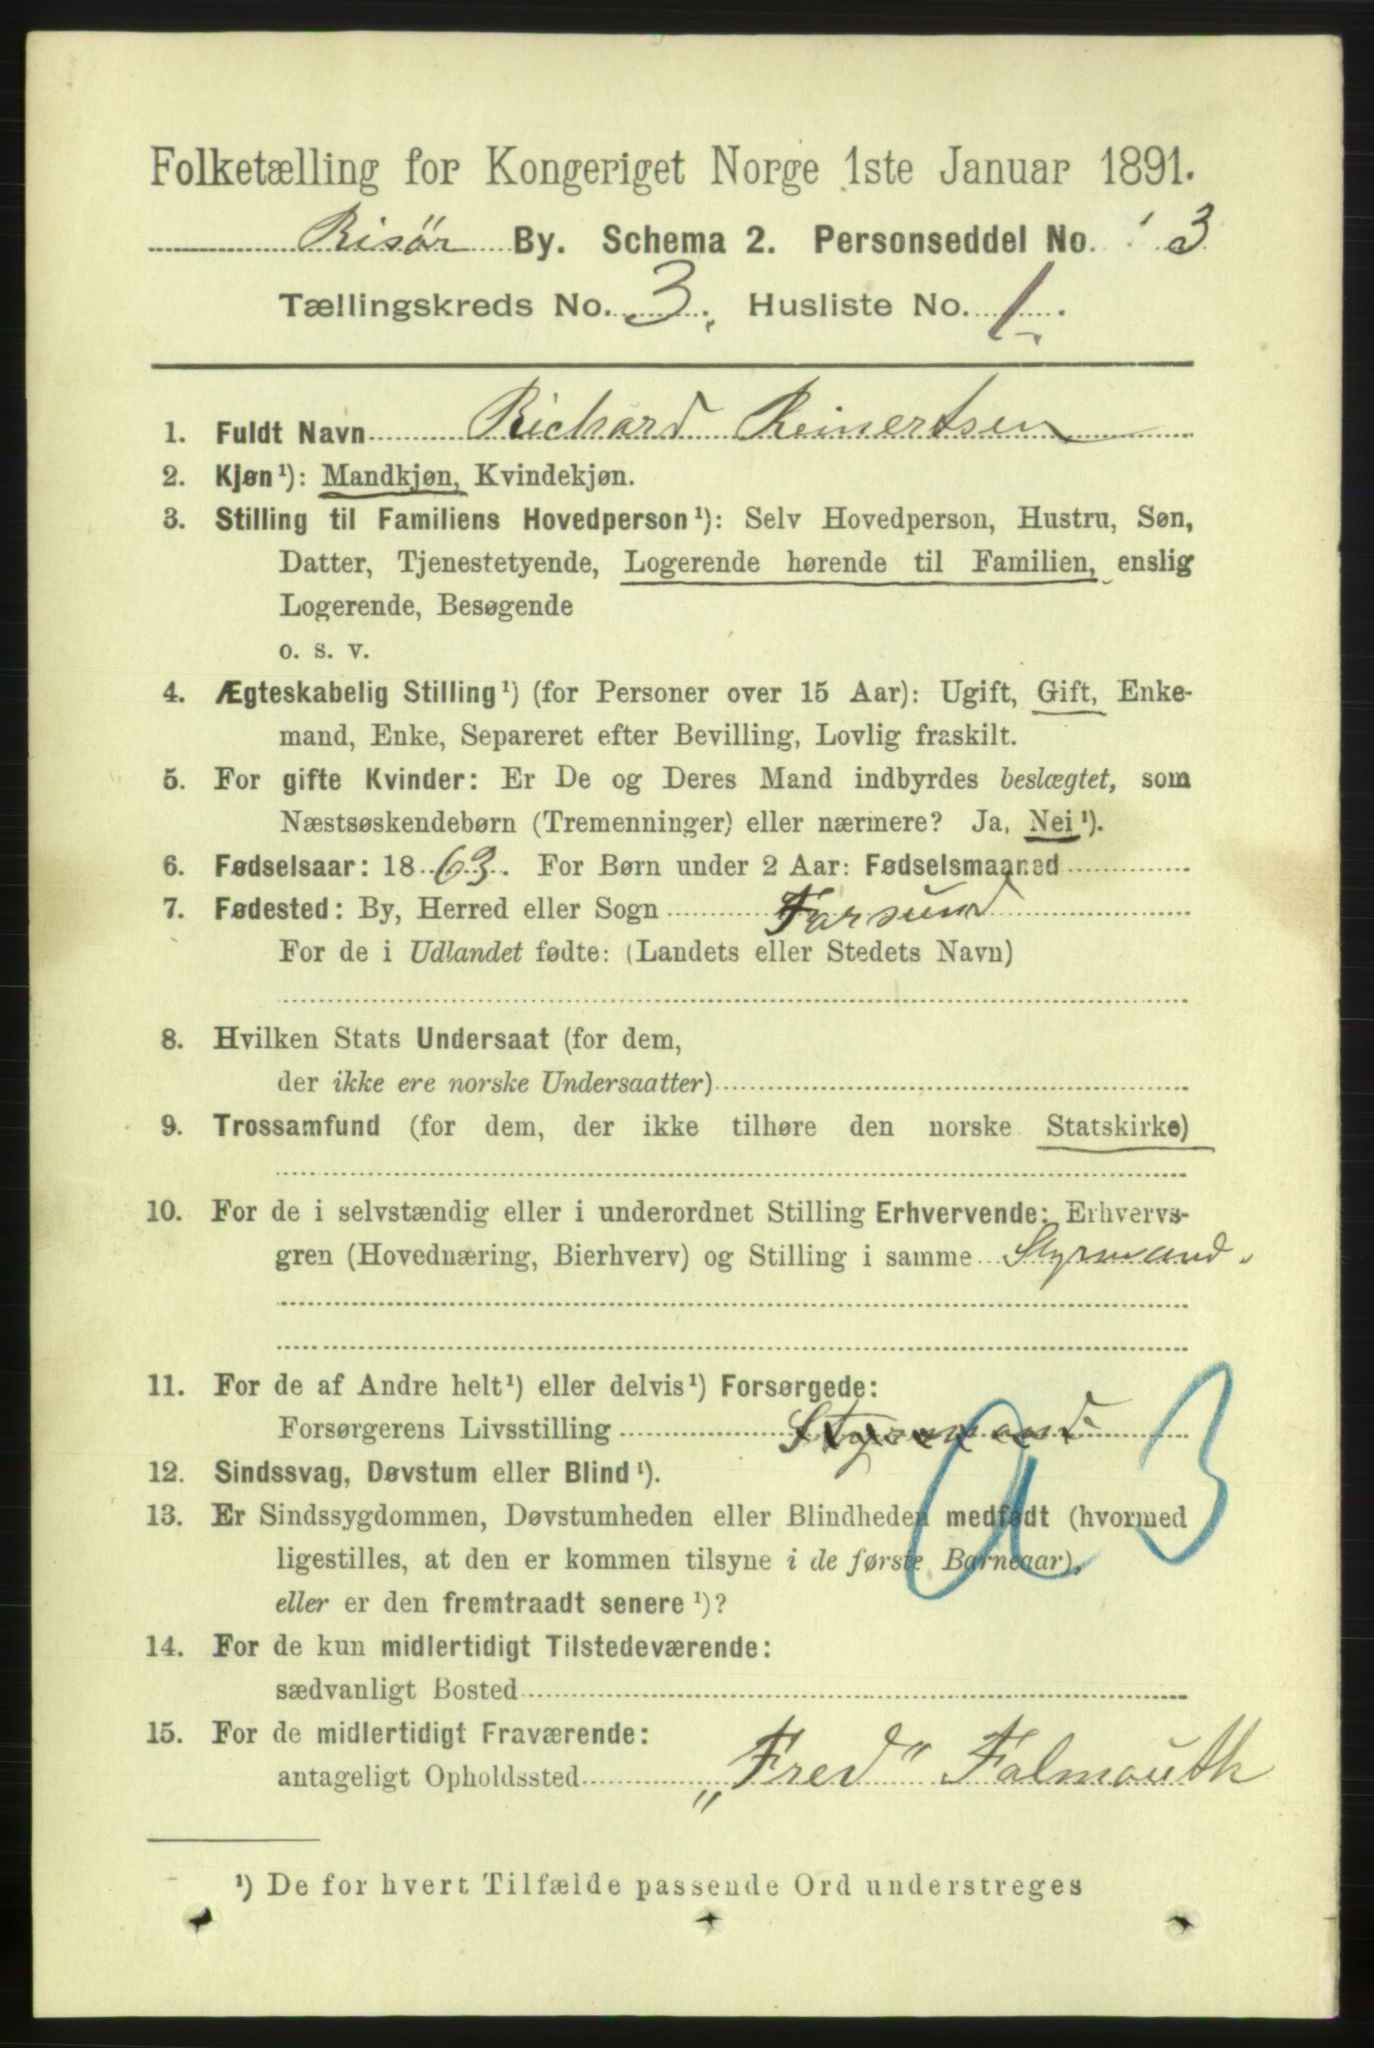 Folketælling for Kongeriget Norge 1ste Januar 1891.
Risør By. Schema 2. Personseddel No. 3
Tællingskreds No. 3. Husliste No. 1.
1. Fuldt Navn Richard Reinertsen
2. Kjøn¹): Mandkjøn, Kvindekjøn.
3. Stilling til Familiens Hovedperson¹): Selv Hovedperson, Hustru, Søn,
Datter, Tjenestetyende, Logerende hørende til Familien, enslig
Logerende, Besøgende
o. s. v.
4. Ægteskabelig Stilling¹) (for Personer over 15 Aar): Ugift, Gift, Enke-
mand, Enke, Separeret efter Bevilling, Lovlig fraskilt.
5. For gifte Kvinder: Er De og Deres Mand indbyrdes beslægtet, som
Næstsøskendebørn (Tremenninger) eller nærmere? Ja, Nei¹).
6. Fødselsaar: 1863. For Børn under 2 Aar: Fødselsmaaned
7. Fødested: By, Herred eller Sogn Farsund
For de i Udlandet fødte: (Landets eller Stedets Navn)
8. Hvilken Stats Undersaat (for dem,
der ikke ere norske Undersaatter)
9. Trossamfund (for dem, der ikke tilhøre den norske Statskirke)
10. For de i selvstændig eller i underordnet Stilling Erhvervende: Erhvervs-
gren (Hovednæring, Bierhverv) og Stilling i samme Styrmand.
11. For de af Andre helt¹) eller delvis¹) Forsørgede:
Forsørgerens Livsstilling Styrmand
12. Sindssvag, Døvstum eller Blind¹).
13. Er Sindssygdommen, Døvstumheden eller Blindheden medfødt (hvormed
ligestilles, at den er kommen tilsyne i de første Barneaar),
eller er den fremtraadt senere¹)?
a 3
14. For de kun midlertidigt Tilstedeværende:
sædvanligt Bosted
15. For de midlertidigt Fraværende:
antageligt Opholdssted „Fred" Falmouth
¹) De for hvert Tilfælde passende Ord understreges